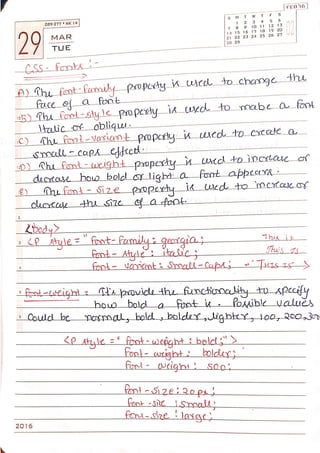 089-277 • WK 14
FEB'16
S M T W T F S
1 2 3 4 5 6
7 8 9 10 11 12 13
14 15 16 17 18 19 20
21 22 23 24 25 26 27
28 29
29 MAR
TUE
CSS- Fonts :-
A) The font-family property is used to change the
face of a font
B) The font-style property is used to make a font
italic or oblique.
C) The font-variant property is used to create a
small-caps effect.
D) The font-weight property is used to increase or
decrease how bold or light a font appears.
E) The font-size property is used to increase or
decrease the size of a font.
<body>
<P style = " font-family : georgia ; This is
font-style : italic ; This is
font-varient : small-caps ; THIS IS >
font-weight : It's provide the functionality to specify
how bold a font is . Possible values
could be normal, bold, bolder, lighter, 100, 200, 300
<P style = " font-weight : bold ; ">
font-weight : bolder ;
font-weight : 500 ;
font-size : 20px ;
font-size : small ;
font-size : large ;
2016